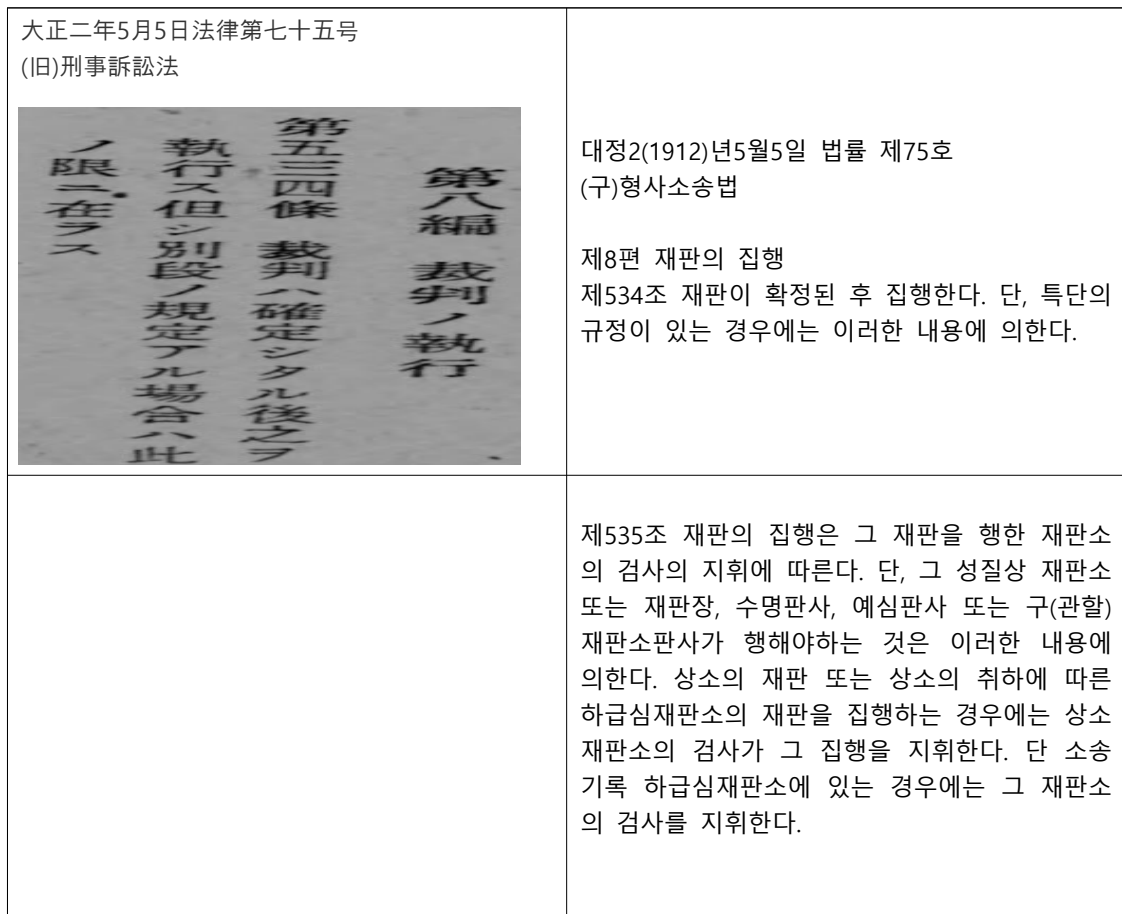 大正二年5月5日法律第七十五号
(旧)刑事訴訟法
第八編 裁判ノ執行
第五三四條 裁判ハ確定シタル後之ヲ
執行ス但シ別段ノ規定アル場合ハ此
ノ限ニ在ラス
대정2(1912)년5월5일 법률 제75호
(구)형사소송법
제8편 재판의 집행
제534조 재판이 확정된 후 집행한다. 단, 특단의
규정이 있는 경우에는 이러한 내용에 의한다.
제535조 재판의 집행은 그 재판을 행한 재판소
의 검사의 지휘에 따른다. 단, 그 성질상 재판소
또는 재판장, 수명판사, 예심판사 또는 구(관할)
재판소판사가 행해야하는 것은 이러한 내용에
의한다. 상소의 재판 또는 상소의 취하에 따른
하급심재판소의 재판을 집행하는 경우에는 상소
재판소의 검사가 그 집행을 지휘한다. 단 소송
기록 하급심재판소에 있는 경우에는 그 재판소
의 검사를 지휘한다.